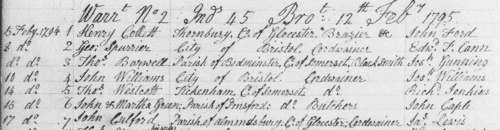 Warrt No 2 Ind 45 Brot 12th Feby 1795
5 Feby 1794 1 Henry Collett Thornbury, Co of Glocester Brazier &c John Ford
8 do 2 Geo: Spurrier City of Bristol Cordwainer Edwd T. Cann
do do 3 Thos Barwell Parish of Bedminster, C. of Somerset, Black Smith Jos: Gunning
10 do 4 John Williams City of Bristol Cordwainer Jos: Williams
14 do 5 Thos Westcott Tickenham, C. of Somerset, do Richd Jenkins
16 do 6 John & Martha Green, Parish of Butchers John Cable
17 do 7 John Parish of Almondsbury, C. of Glocester, Cordwainer Jas: Lewis